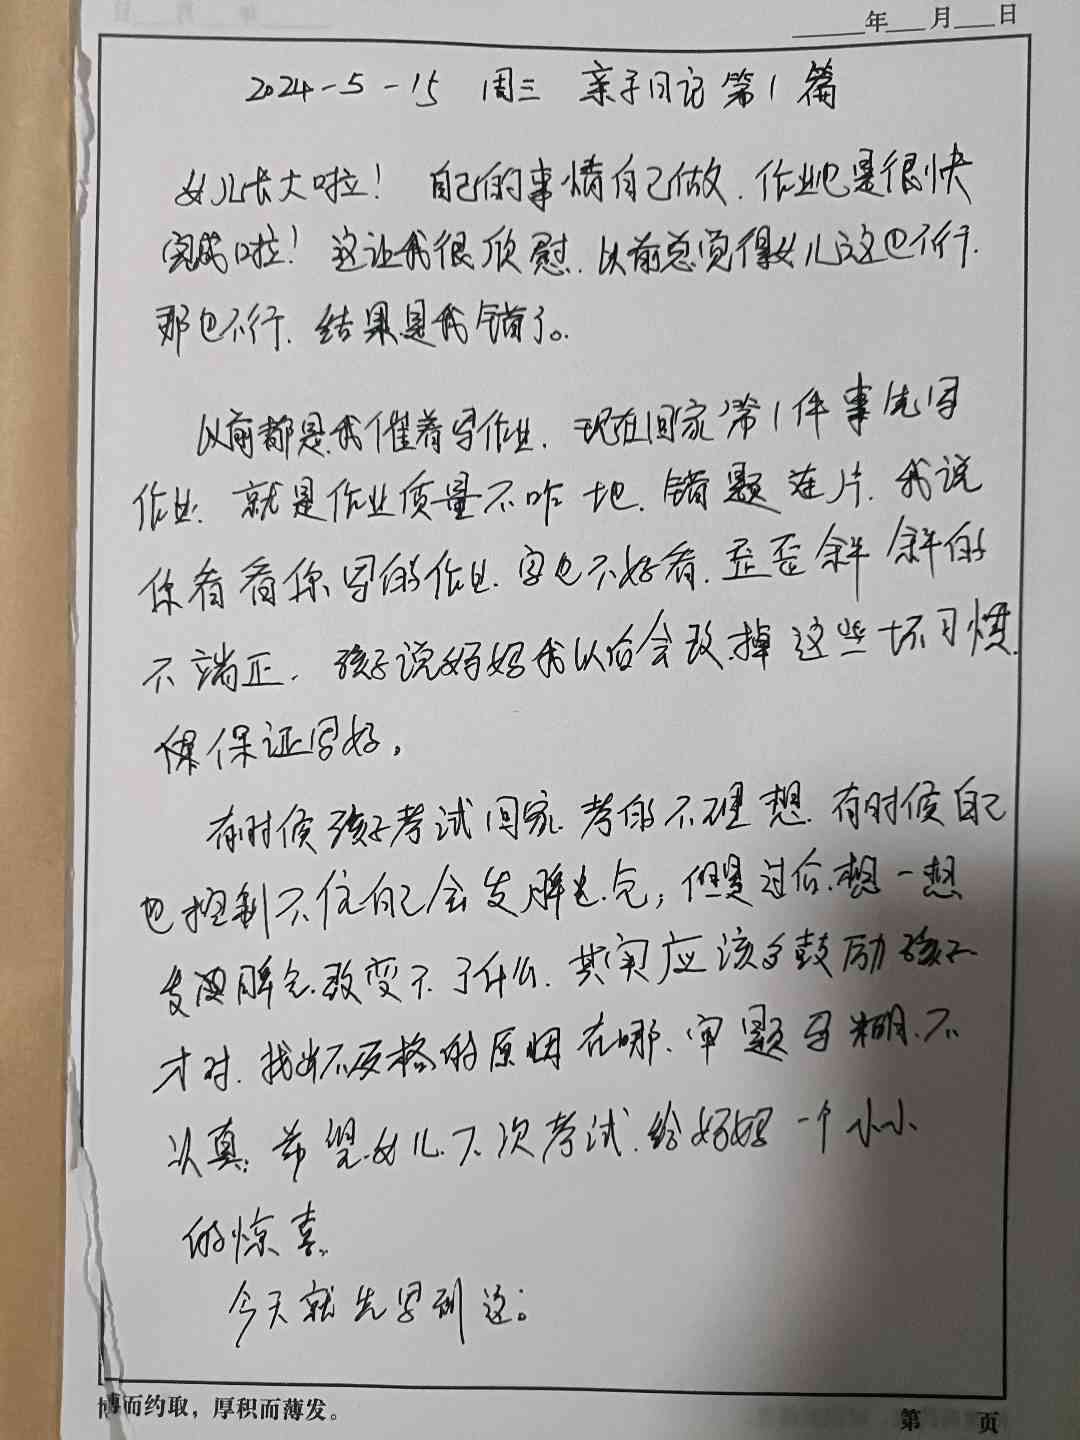 年 月 日
2024-5-15 周三 亲子日记第1篇
女儿长大啦！自己的事情自己做.作业也是很快
完成啦！这让我很欣慰.以前总觉得女儿这也不行.
那也不行.结果是我错了。
以前都是我催着写作业.现在回家第1件事先写
作业.就是作业质量不咋地.错题连片.我说
你看看你写的作业.字也不好看.歪歪斜斜的
不端正.孩子说妈妈我以后会改掉这些坏习惯.
保证写好.
有时候孩子考试回家.考的不理想.有时候自己
也控制不住自己会发脾气,但是过后.想一想
发脾气.改变不了什么.其实应该多鼓励孩子
才对.找出不及格的原因在哪.审题马糊.不
认真.希望女儿下次考试.给妈妈一个小小
的惊喜.
今天就先写到这。
博而约取，厚积而薄发。
第 页